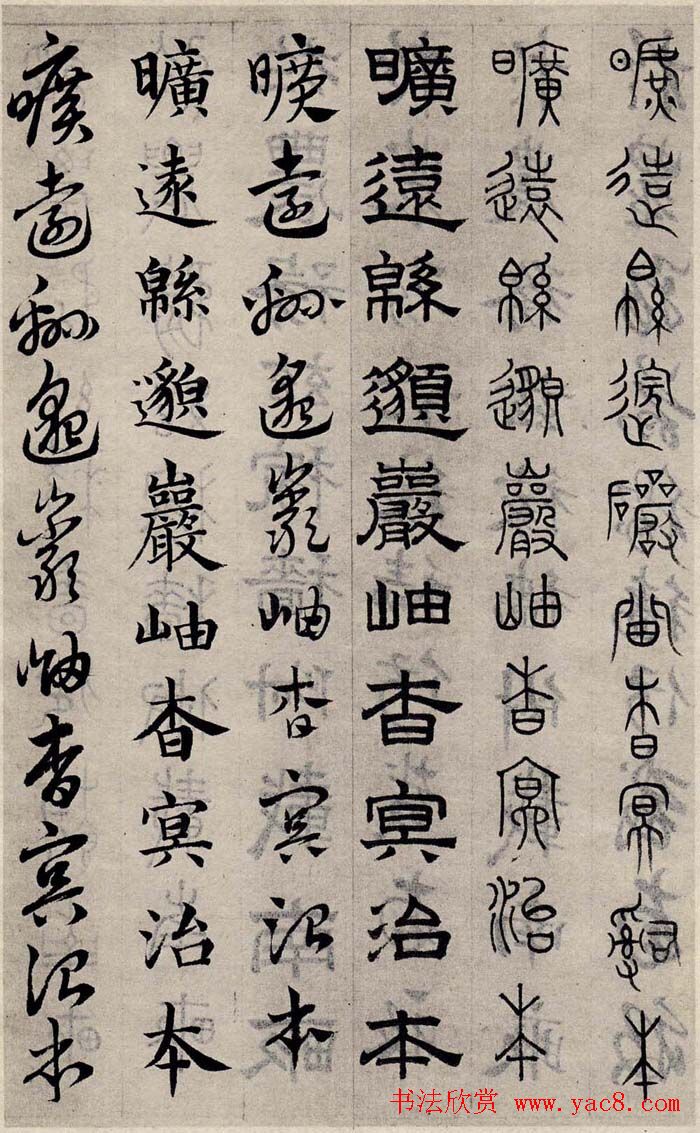 曠遠緜邈巖岫杳冥治本
曠遠緜邈巖岫杳冥治本
曠遠緜邈巖岫杳冥治本
曠遠緜邈巖岫杳冥治本
曠遠緜邈巖岫杳冥治本
曠遠緜邈巖岫杳冥治本
书法欣赏 www.yac8.com